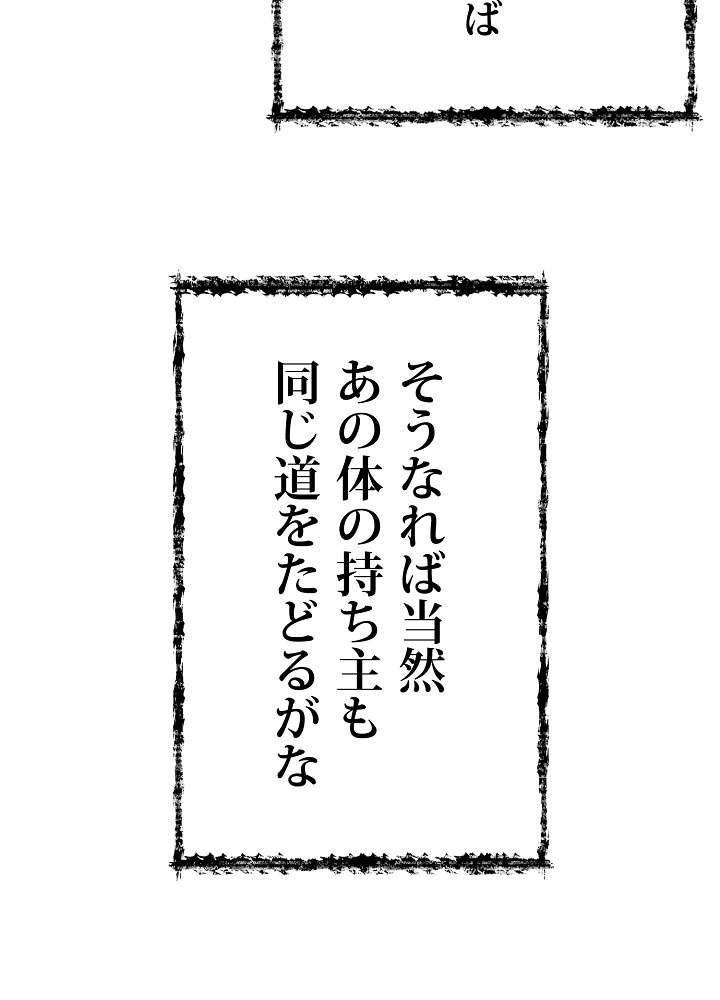 ば
そうなれば当然
あの体の持ち主も
同じ道をたどるがな